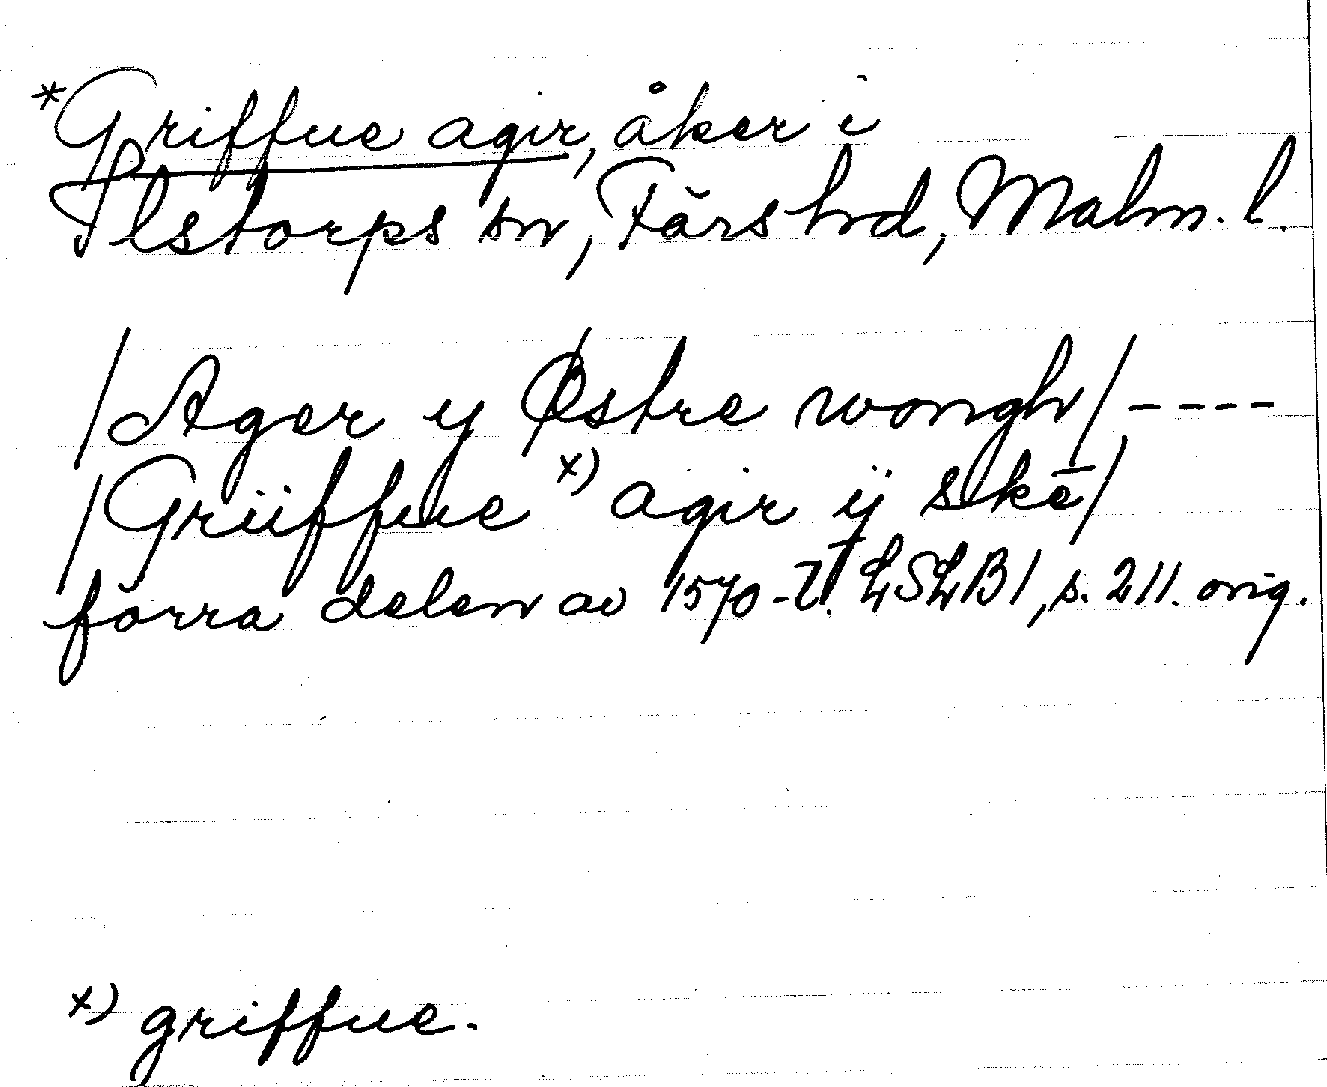 *Griffue agir, åker i
Ilstorps sn, Färs hd, Malm. l.
/Ager y Østre wongh/----
/Grüffue x) agir ij skē/
förra delen av 1570-t. LSLB1, s. 211. orig.
x) griffue.